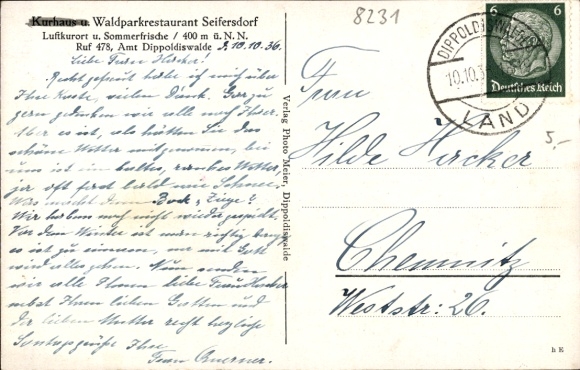 8231
Kurhaus u. Waldparkrestaurant Seifersdorf
Luftkurort u. Sommerfrische / 400 m ü. N. N.
Ruf 478, Amt Dippoldiswalde
10.10.36
Liebe Frau Hecker!
Recht gefreut habe ich mich über
Ihre Karte, vielen Dank.
gern denken wir alle noch
Aber es ist, als hätten Sie das
schöne Wetter mitgenommen, bei
uns ist ein kaltes, Wetter,
ja oft fast bald wie Schnee.
Was macht denn Bock „Ziege“?
Wir haben noch nicht wieder gespielt.
Vor dem Winter ist
es ist zu einsam, nur mit Gott
wird alles gehen. Nun senden
wir alle Ihnen liebe Frau Hecker
nebst Ihrem lieben Gatten und
der lieben Mutter recht herzliche
Sonntagsgrüße Ihre
Frau
Verlag Photo Meier, Dippoldiswalde
6 6
Deutsches Reich
DIPPOLDISWALDE
10.10.3
LAND
5,-
Frau
Hilde Hecker
Chemnitz
Weststr: 26.
h E